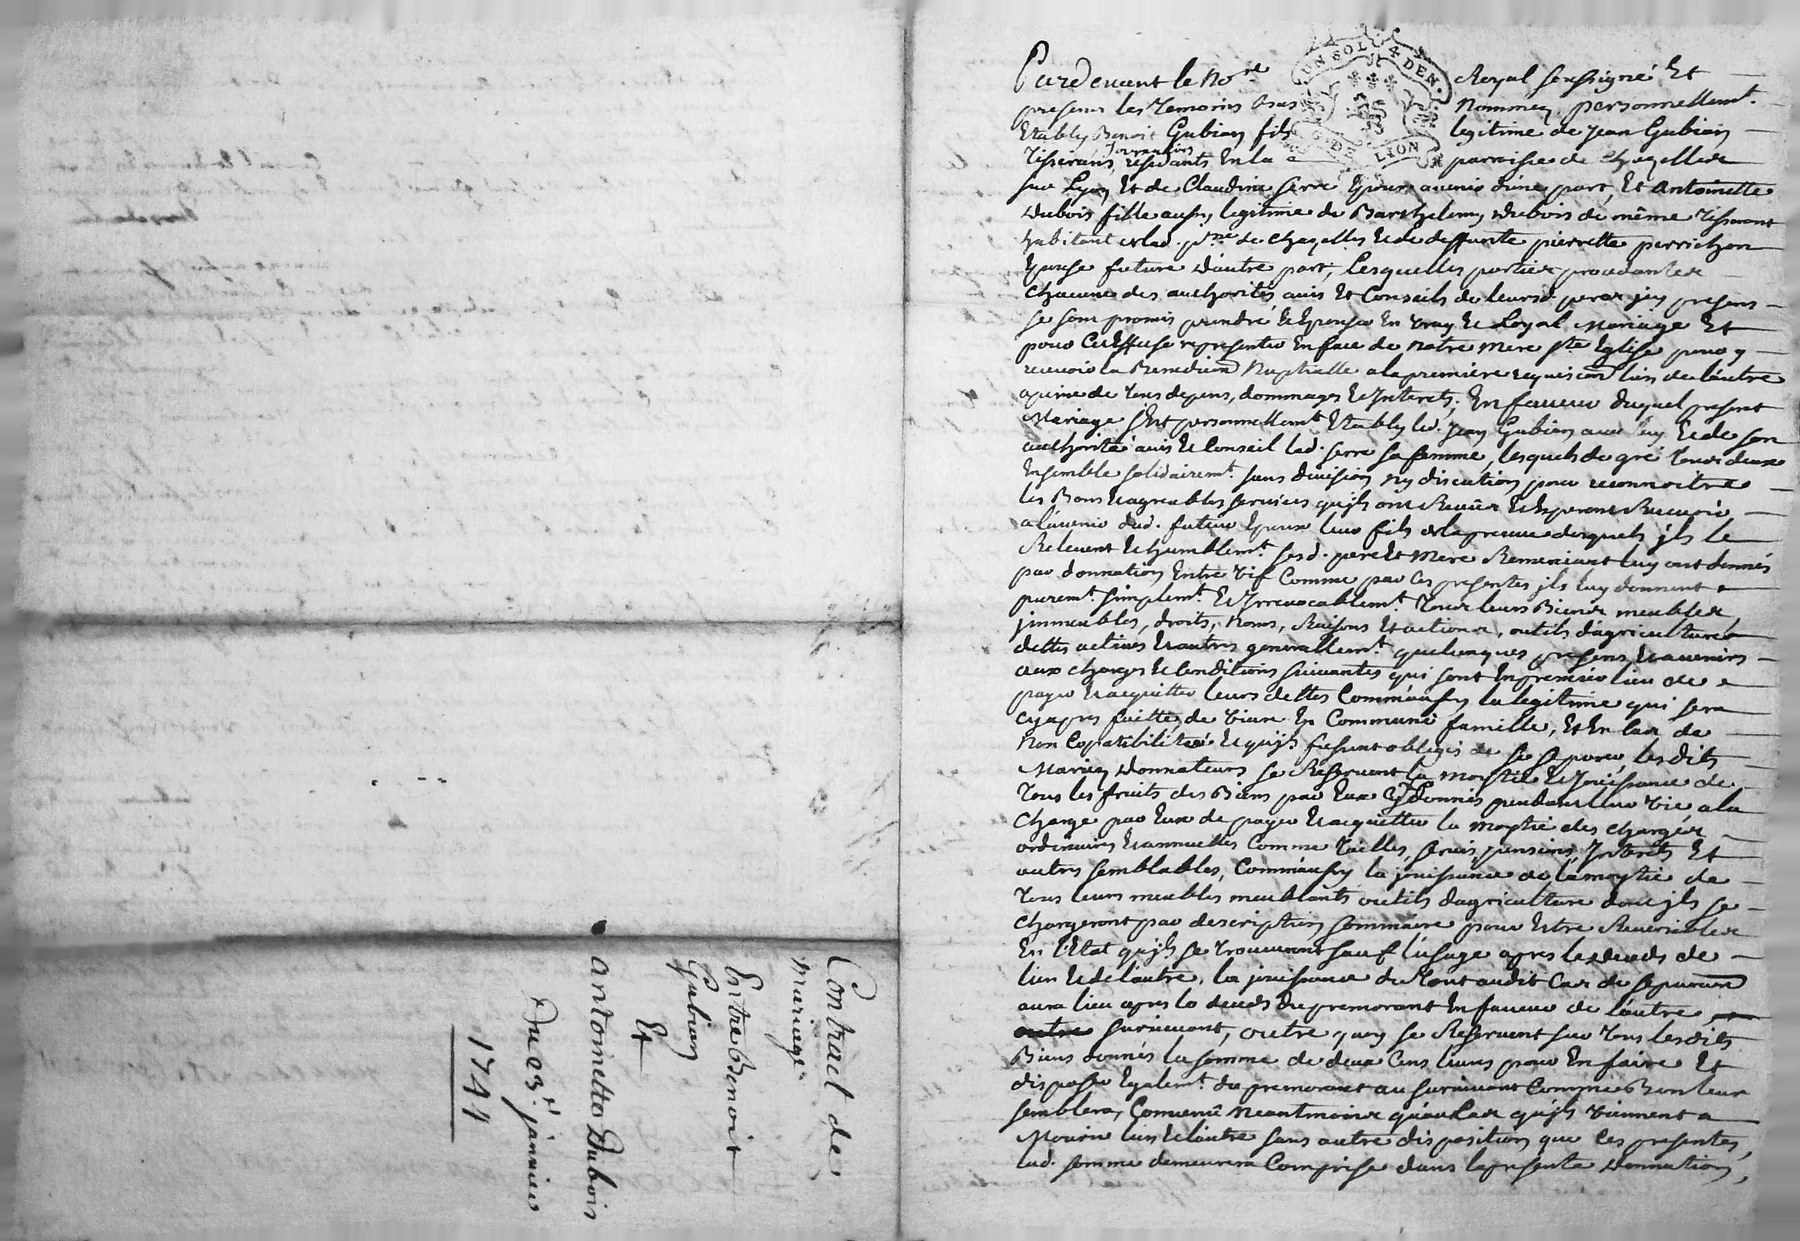 Contract de
mariage
Entre Benoit
Gubian
Et
antoinette Dubois
Du 23.e janvier
1744
UN SOL 4 DEN
G. DE LION
Pardevant le No.re Royal soussigné Et
presens les Temoins bas Nommez, personnellem.t
Etably Benoit Gubian fils legitime de jean Gubian
Tisserans, residants En la paroisse de Chazelles
sur Lyon Et de Claudine serre Epoux avenir d'une part, Et Antoinette
Dubois fille aussy legitime de Barthelemy Dubois de même Tisserant
habitant aud. de Chazelles Et de deffunte pierrette perrichon
Epouse future D'autre part, Lesquelles parties procedantes
Chacune des authorités, avis Et Conseils de leursd. peres jcy presens
se sont promis prendre Et Epouser En vray Et Loyal Mariage Et
pour Cet Effet se representer En face de Notre Mere s.te Eglise pour y
recevoir la Benediction Nuptialle a la premiere requisition l'un de l'autre
a peine de Tous depens, dommages Et Jnterets; En faveur duquel present
Mariage s'Est personnellem.t Etably led. jean Gubian avec luy Et de son
authorité avis Et Conseil lad. serre sa femme, lesquels de gré Tous deux
Ensemble solidairem.t sans division ny discution pour reconnoitre
les Bons Et agreables services qu'jls ont Receus Et Esperent Recevoir
a l'avenir dud. futur Epoux leur fils de la preuve desquels jls le
Relevent Et humblem.t sesd. pere Et Mere Remerciant luy ont donnés
par donnation Entre Vif Comme par Ces presentes jls luy donnent
purem.t simplem.t Et Jrrevocablem.t Tous leurs Biens meubles,
jmmeubles, droits, Noms, Raisons Et actions, outils d'agriculture
dettes actives Et autres generallem.t quelconques presens Et avenirs
aux charges Et Conditions suivantes qui sont En premier lieu de
payer Et acquitter leurs dettes Comm'aussy la legitime qui sera
cyapres faitte, de vivre En Commune famille, Et En Cas de
Non Copatibilité Et qu'jls fussent obligés de se separer, lesdits
Mariez Donnateurs se Reservent la moytié Et Jouissance de
Tous les fruits des Biens par Eux cy donnés pendant leur vie a la
Charge par Eux de payer Et acquitter la moytié des charges
ordinaires Et annuelles Comme Tailles, servis, pensions, Jnterets Et
autres semblables, Comm'aussy la jouissance de la moytié de
Tous leurs meubles meublants outils dagriculture dont jls se
Chargeront par description sommaire pour Estre Reversibles
En l'Etat qu'jls se Trouveront sauf l'usage apres le deceds de
l'un Et de l'autre, la jouissance du Tout audit Cas de separation
aura lieu apres le deceds du premorant En faveur de l'autre
survivant, outre quoy se Reservent sur Tous lesdits
Biens donnés la somme de deux Cens livres pour En faire Et
disposer Egalem.t du premorant au survivant Comme Bon leur
semblera, Convenu Neantmoins qu'au Cas qu'jls viennent a
Mourir l'un Et l'autre sans autre disposition que Ces presentes,
lad. somme demeurera Comprise dans la presente Donnation,